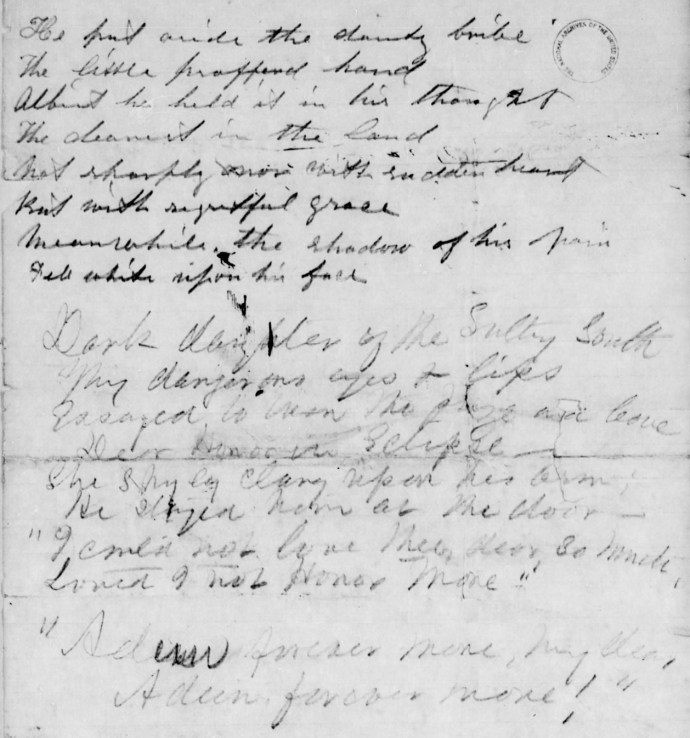 He put aside the dainty bribe
The little proffered hand
Albeit he held it in his thought
The dearest in the land
Not sharply nor with sudden heart
But with regretful grace
Meanwhile the shadow of his pain
Fell white upon his face
Dark daughter of the Sultry South
Thy dangerous eyes & lips
Essayed to win the prize and leave
Dear Honor in Eclipse
She shyly clung upon his arm,
He stayed him at the door
"I could not love thee, dear, so much,
Loved I not Honor More"
"Adieu forever more, my dear,
Adieu forever more!"
THE NATIONAL ARCHIVES OF THE UNITED STATES